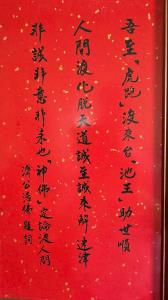 吾至「虎爺」渡來台「池王」助世順
人間渡化脫天道誠至誠來解迷津
非誠非意非未也「神佛」定論渡人間
濟公活佛題詞